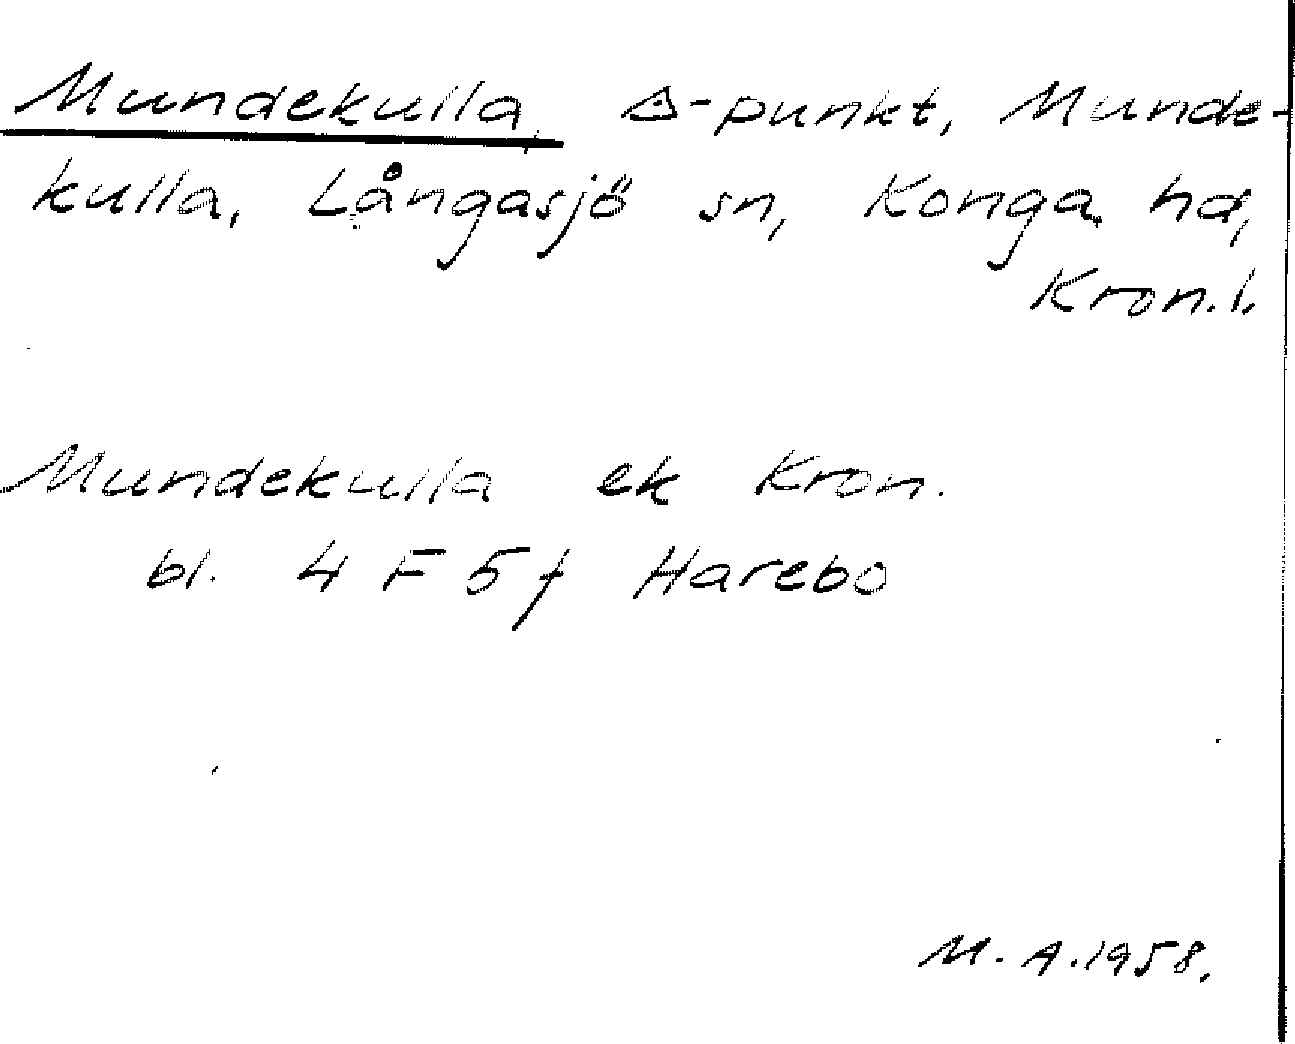 Mundekulla, △-punkt, Munde-
kulla, Långasjö sn, Konga hd,
Kron.l.
Mundekulla ek Kron.
bl. 4 F 5 f Harebo
M. A. 1958.